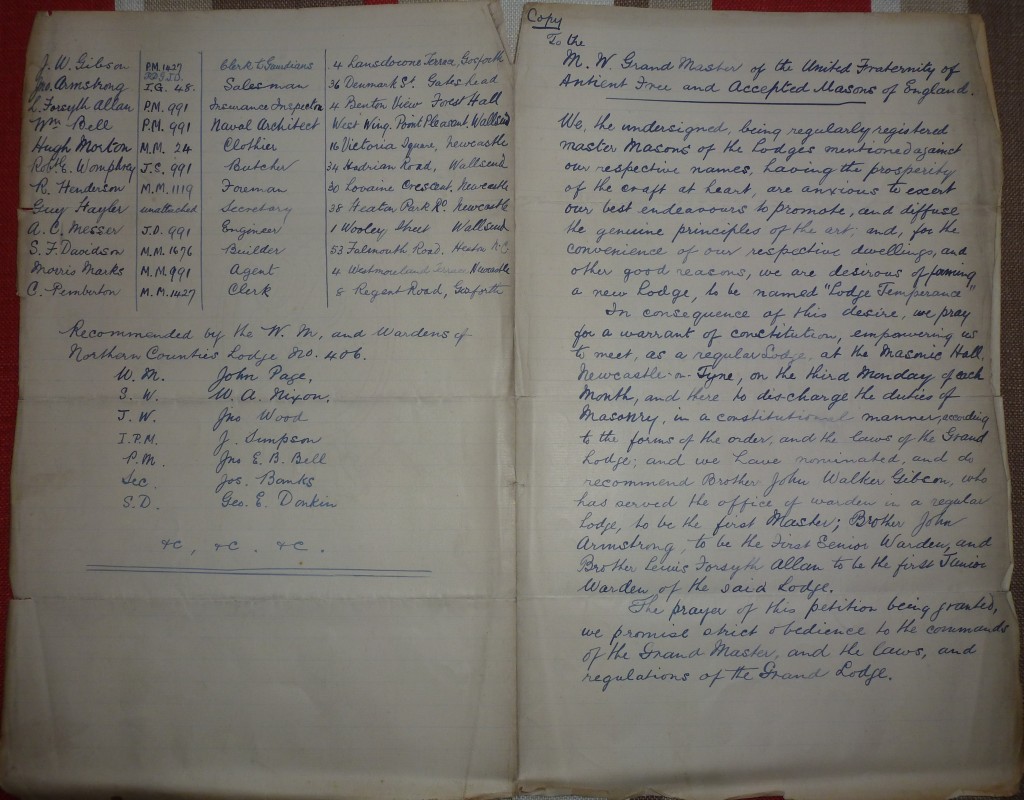 J. W. Gibson P.M. 1427 Clerk to Guardians 4 Lansdowne Terrace, Gosforth
Jno. Armstrong J.G. 48. Salesman 36 Denmark St. Gateshead
L. Forsyth Allan P.M. 991 Insurance Inspector 4 Benton View Forest Hall
Wm Bell P.M. 991 Naval Architect West Wing. Point Pleasant, Wallsend
Hugh Morton M.M. 24 Clothier 16 Victoria Square, Newcastle
Robt. E. Womphrey J.S. 991 Butcher 34 Hadrian Road, Wallsend
R. Henderson M.M. 1119 Foreman 30 Lovaine Crescent, Newcastle
Guy Hayler unattached Secretary 38 Heaton Park Rd. Newcastle
A. C. Messer J.D. 991 Engineer 1 Wooley Street Wallsend
S. F. Davidson M.M. 1676 Builder 53 Falmouth Road. Heaton N.C.
Morris Marks M.M. 991 Agent 4 Westmoreland Terrace, Newcastle
C. Pemberton M.M. 1427 Clerk 8 Regent Road, Gosforth
Recommended by the W. M., and Wardens of
Northern Counties Lodge No. 406.
W. M. John Page,
S. W. W. A. Nixon.
J. W. Jno Wood
I.P.M. J. Simpson
P.M. Jno E. B. Bell
Sec. Jos. Banks
S.D. Geo. E. Donkin
&c, &c. &c.
Copy
To the
M. W. Grand Master of the United Fraternity of
Antient Free and Accepted Masons of England.
We, the undersigned, being regularly registered
master Masons of the Lodges mentioned against
our respective names, having the prosperity
of the craft at heart, are anxious to exert
our best endeavours to promote, and diffuse
the genuine principles of the art; and, for the
convenience of our respective dwellings, and
other good reasons, we are desirous of forming
a new Lodge, to be named "Lodge Temperance"
In consequence of this desire, we pray
for a warrant of constitution, empowering us
to meet, as a regular Lodge, at the Masonic Hall,
Newcastle-on-Tyne, on the third Monday of each
Month, and there to discharge the duties of
Masonry, in a constitutional manner, according
to the forms of the order, and the laws of the Grand
Lodge; and we have nominated, and do
recommend Brother John Walker Gibson, who
has served the office of warden in a regular
Lodge, to be the first Master; Brother John
Armstrong, to be the First Senior Warden, and
Brother Lewis Forsyth Allan to be the first Junior
Warden of the said Lodge.
The prayer of this petition being granted,
we promise strict obedience to the commands
of the Grand Master, and the laws, and
regulations of the Grand Lodge.